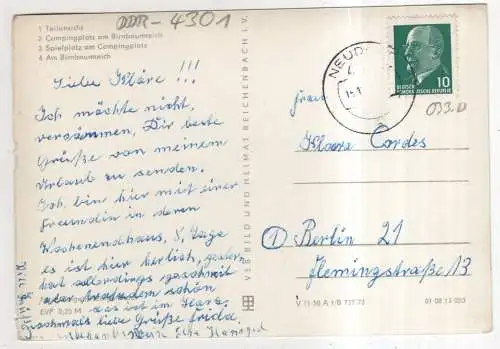 DDR-4301
1 Teilansicht
2 Campingplatz am Birnbaumteich
3 Spielplatz am Campingplatz
4 Am Birnbaumteich
Liebe Kläre !!!
Ich möchte nicht
versäumen, Dir beste
Grüße von meinem
Urlaub zu senden.
Ich bin hier mit einer
Freundin in deren
Wochenendhaus, 8 Tage
es ist hier herlich, gestern
hat allerdings geschneit
aber trotzdem schön
das ist im Harz.
nochmals liebe Grüße Frida.
EVP 0,20 M
VEB BILD UND HEIMAT REICHENBACH I. V.
NEUD
10
DEUTSCHE
DEMOKRATISCHE REPUBLIK
Frau
Klara Cordes
1 Berlin 21
Flemingstraße 13
V 11-50 A 1/B 737/73
01 08 12 053